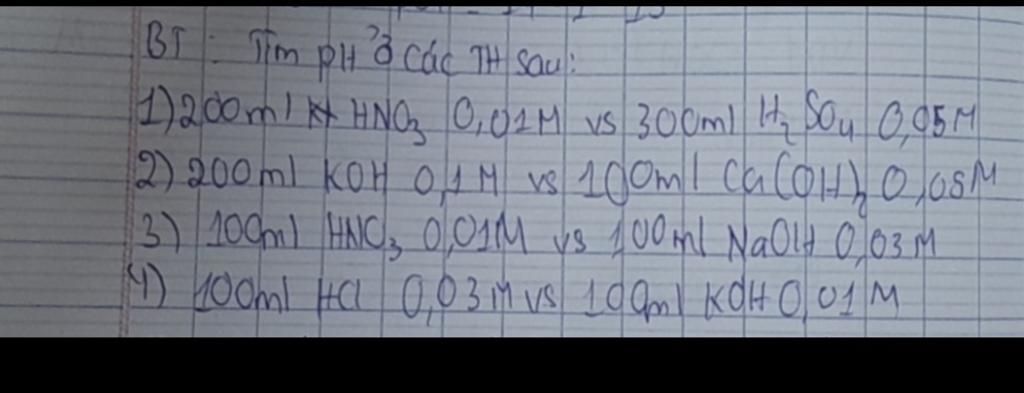 BT: Tìm pH ở các TH sau:
1) 200ml HNO3 0,01M vs 300ml H2SO4 0,05M
2) 200ml KOH 0,1M vs 100ml Ca(OH)2 0,05M
3) 100ml HNO3 0,01M vs 100ml NaOH 0,03M
4) 100ml HCl 0,03M vs 100ml KOH 0,01M